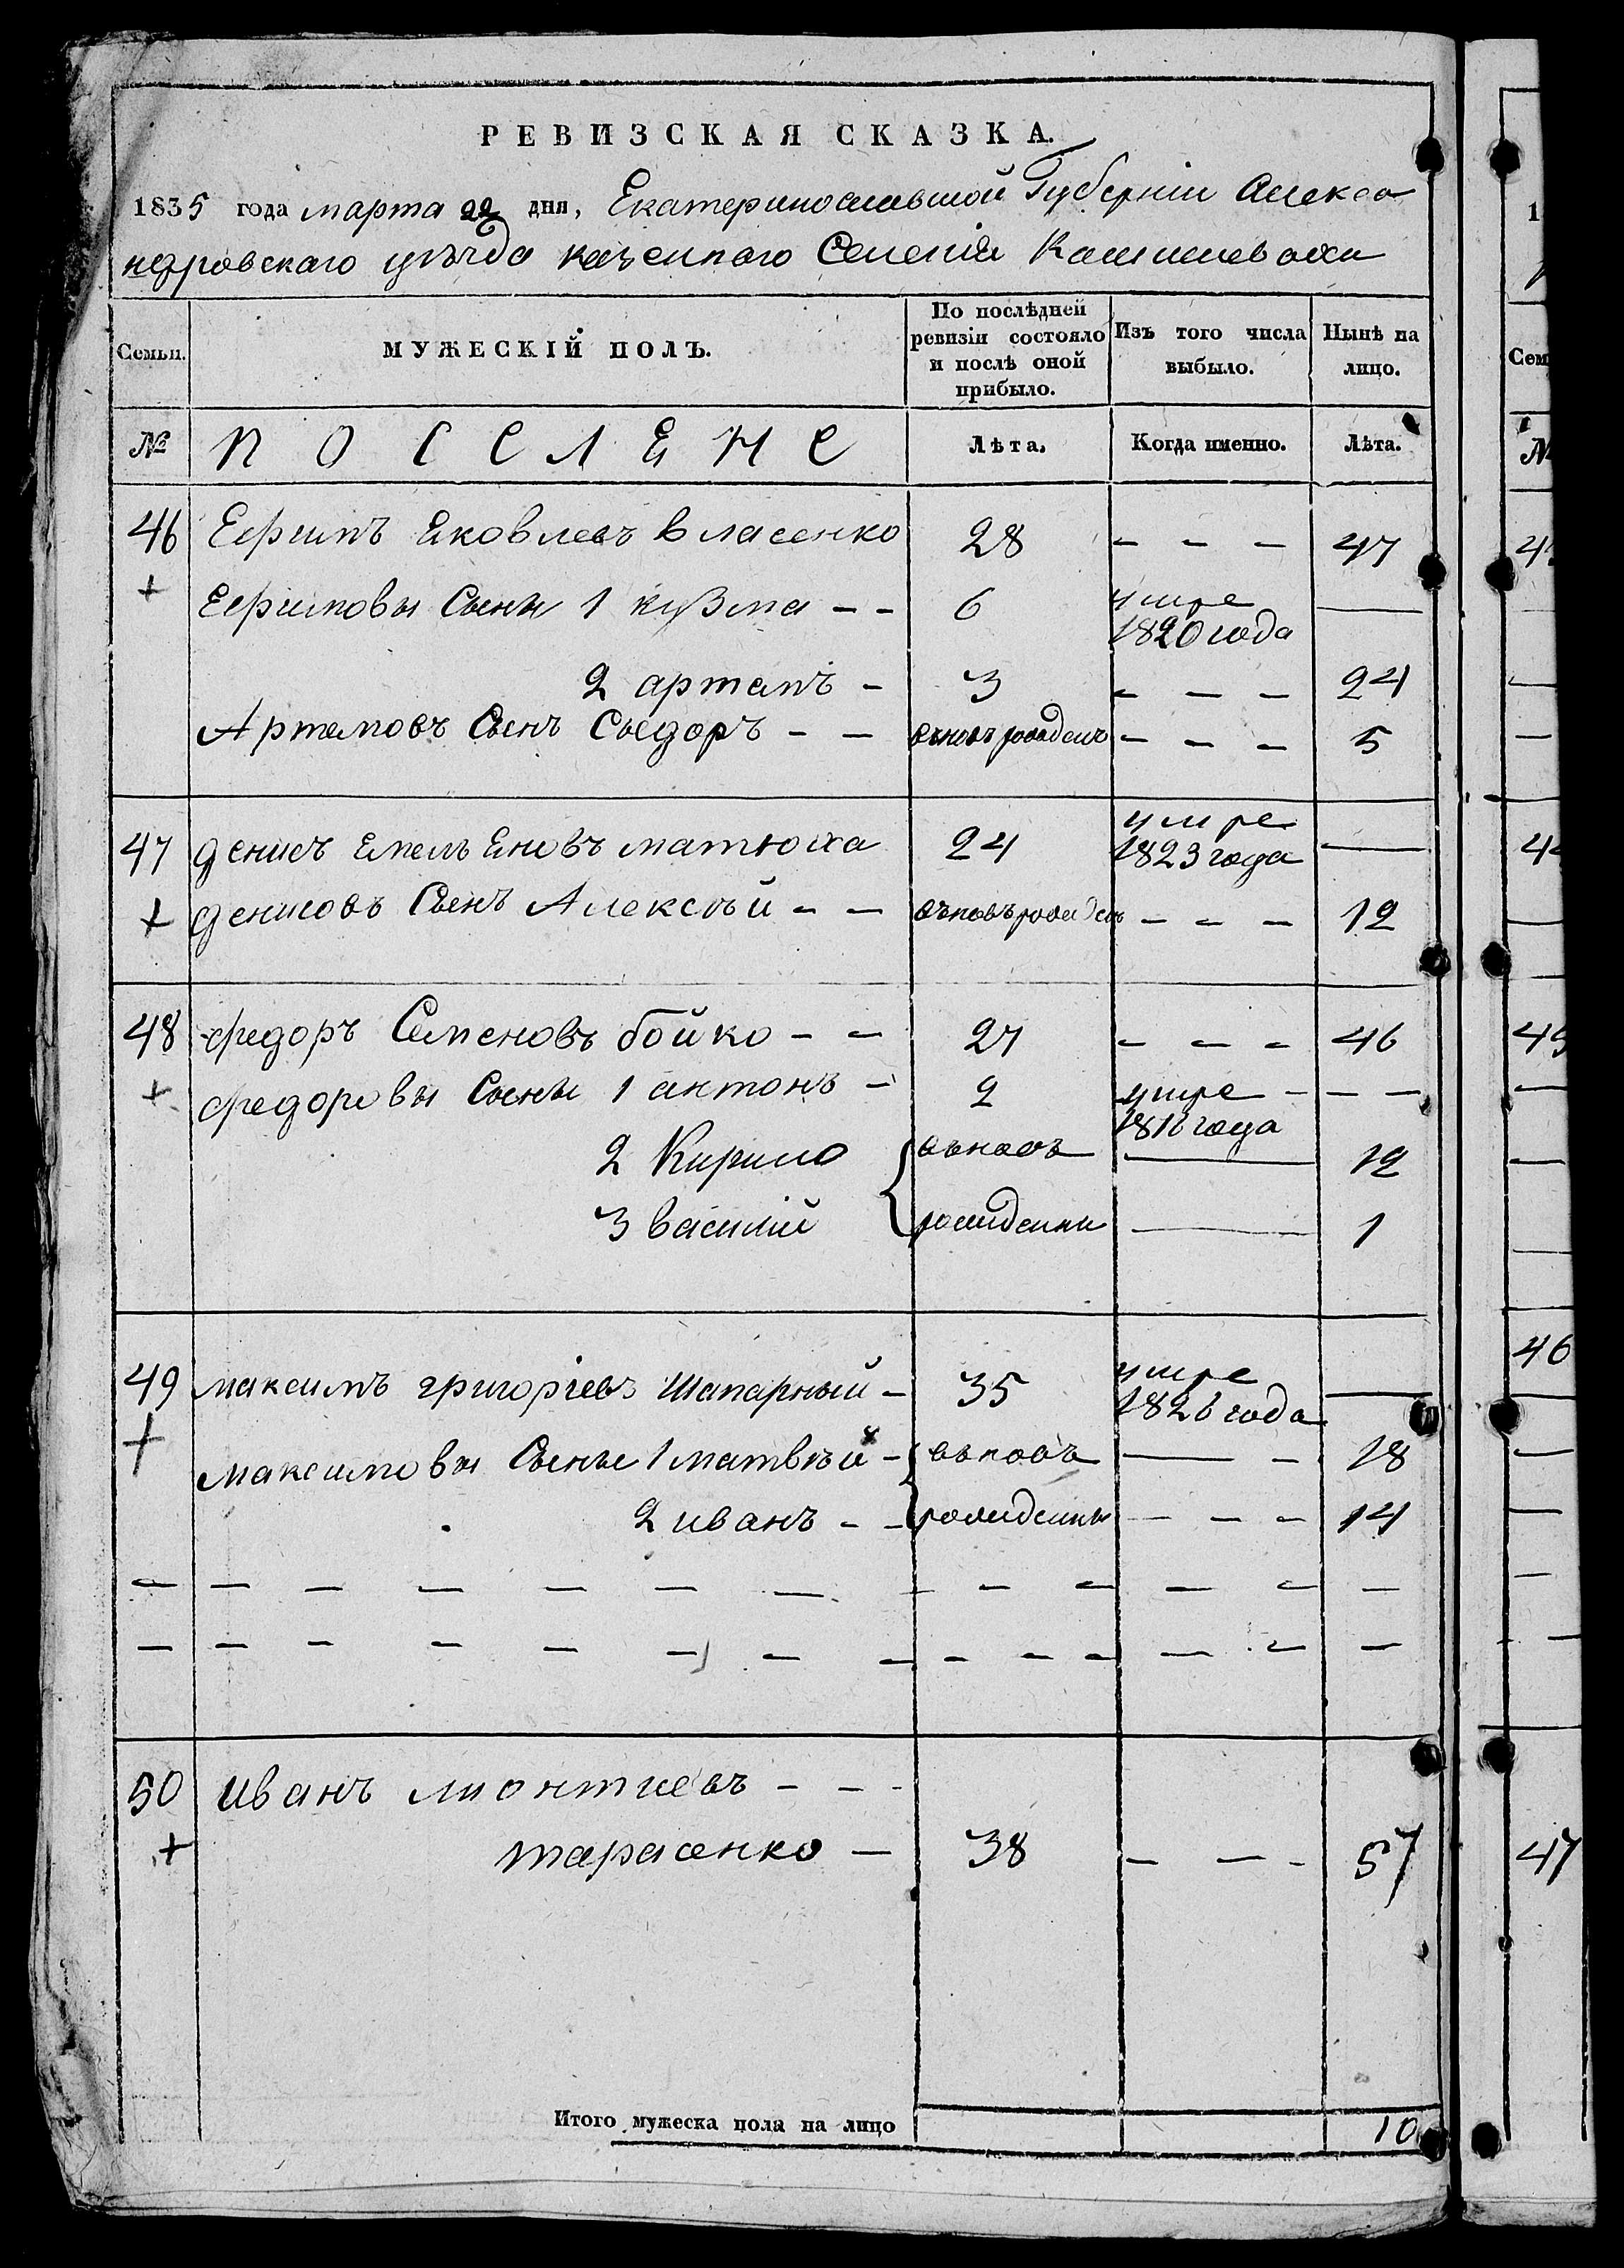 РЕВИЗСКАЯ СКАЗКА.
1835 года марта 22 дня, Екатеринославской Губерніи Алекса
ндровскаго уѣзда казеннаго Селенія Камышевахи
Семьи. МУЖЕСКІЙ ПОЛЪ. По послѣдней ревизіи состояло и послѣ оной прибыло. Изъ того числа выбыло. Нынѣ на лицо.
№ ПОСЕЛЕНЕ Лѣта. Когда именно. Лѣта.
46 Ефимъ Яковлевъ власенко 28 – – – 47
+ Ефимовы Сыны 1 кузма – – 6 умре 1820 года —
2 артемъ – 3 – – – 24
Артемовъ Сынъ Сыдоръ – – вновь рожденъ – – – 5
47 денисъ Емельеновъ матюха 24 умре 1823 года —
+ денисовъ Сынъ Алексѣй – – вѣновь рожденъ – – – 12
48 федоръ Семеновъ бойко – – 27 – – – 46
+ федоровы Сыны 1 антонъ – 2 умре 1816 года – – –
2 Кирило вѣновь — 12
3 василій рожденны — 1
49 максимъ григоріевъ Шапарный – 35 умре 1826 года —
+ максимовы Сыны 1 матвѣй – вѣновь — – 18
2 иванъ – – рожденны – – – 14
– – – – – – – – – – – – –
– – – – – – – – – – – – –
50 иванъ лионтиевъ – – –
+ тарасенко – 38 – – – 57
Итого мужеска пола на лицо 10
1
Сем
№
46
47